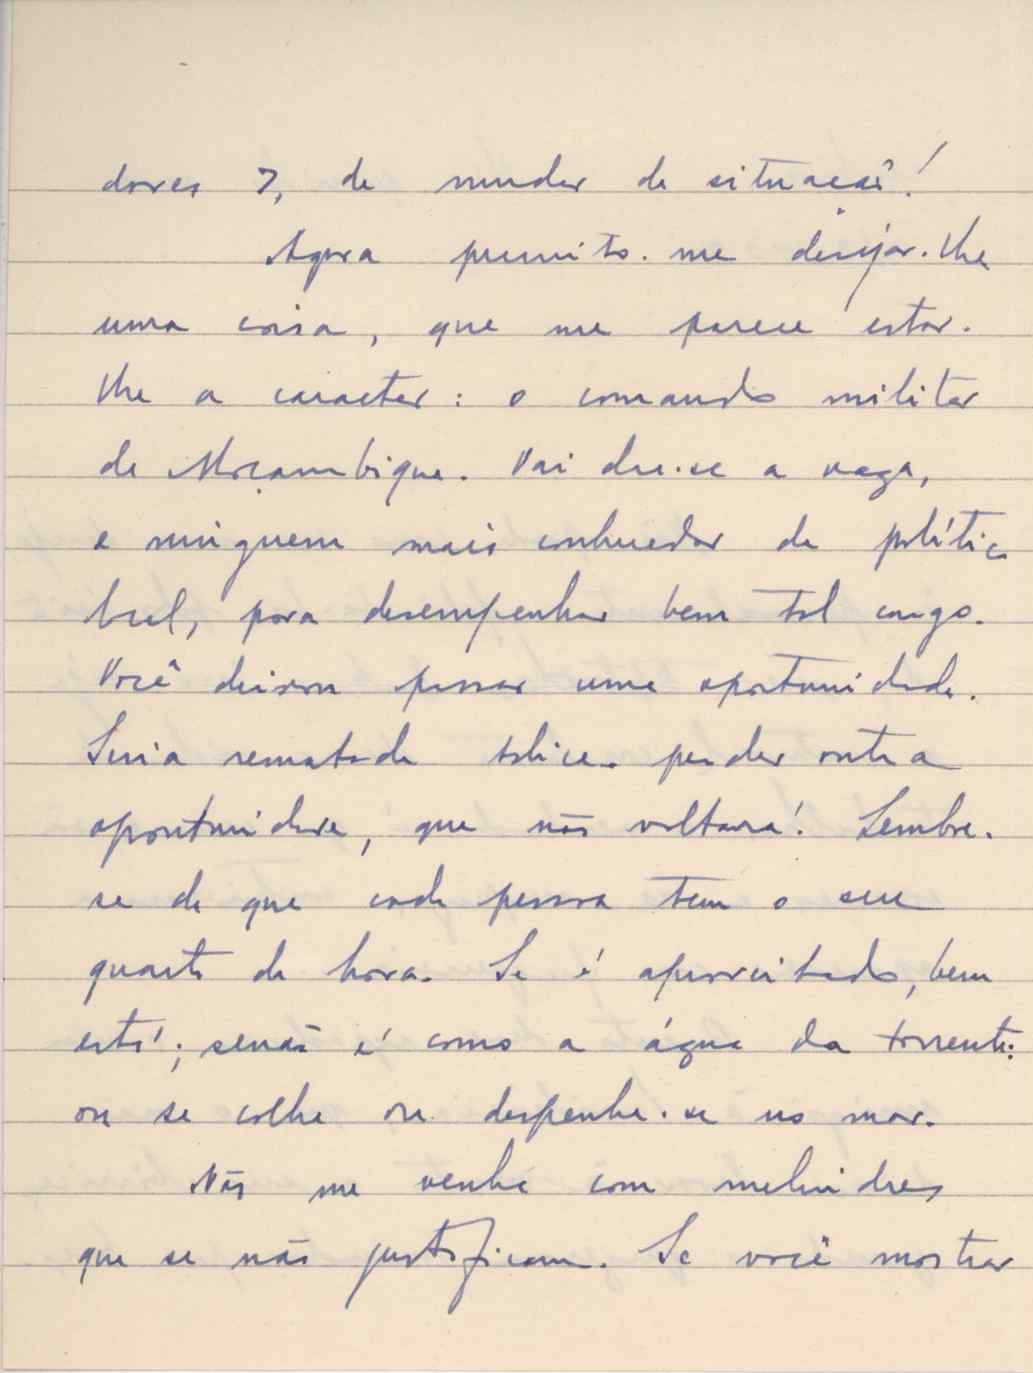 dores 7, de mudar de situação!
Agora permito-me desejar-lhe
uma coisa, que me parece estar-
lhe a caracter: o comando militar
de Moçambique. Vai dar-se a vaga,
e ninguem mais conhecedor da polític
local, para desempenhar bem tal cargo.
Você deixou passar uma oportunidade.
Seria rematada tolice perder outra
oportunidade, que não voltará! Lembre-
se de que cada pessoa tem o seu
quarto de hora. Se é aproveitado, bem
está; senão é como a água da torrente:
ou se colhe ou despenha-se no mar.
Não me venha com melindres
que se não justificam. Se você mostrar